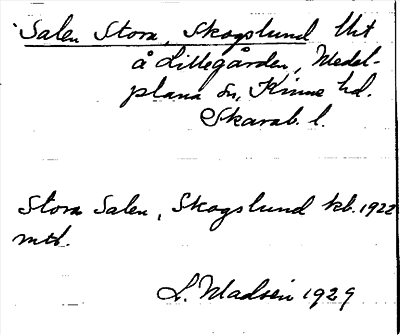 Salen Stora, Skogslund lht
å Lillegården, Medel-
plana sn, Kinne hd.
Skarab. l.
Stora Salen, Skogslund kb. 1922
mtl.
L. Madsén 1929